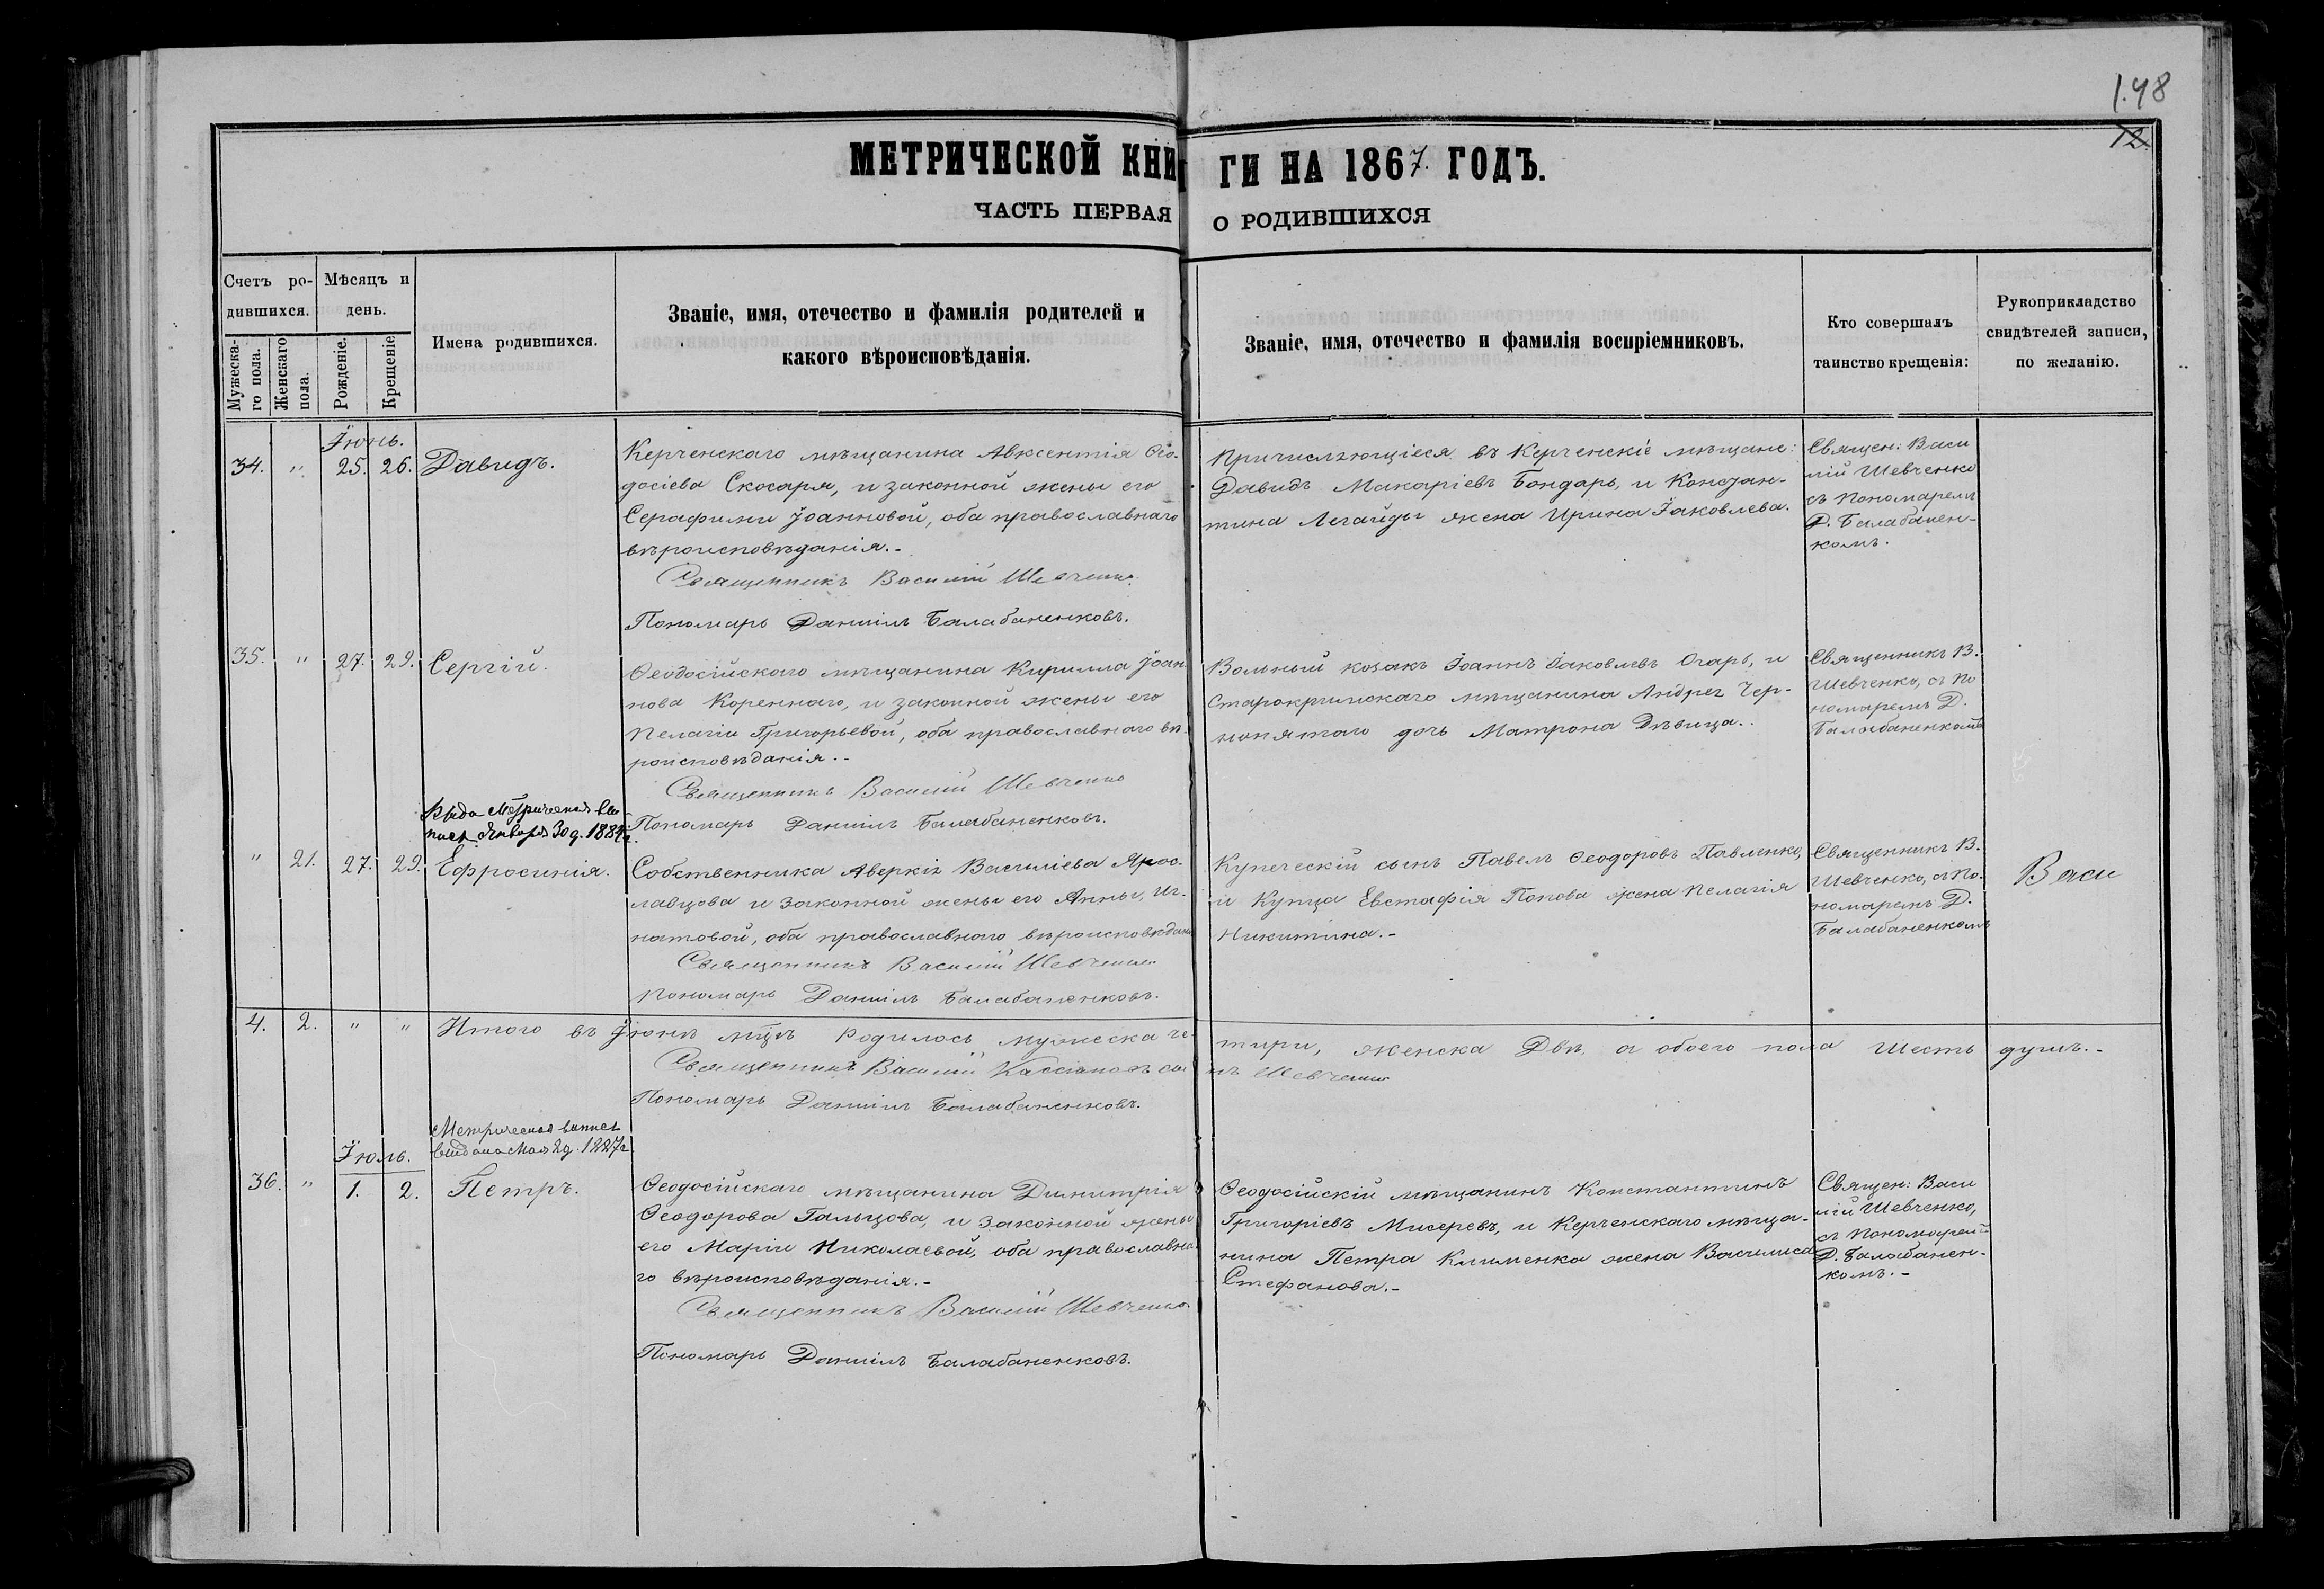 148
12.
МЕТРИЧЕСКОЙ КНИГИ НА 1867. ГОДЪ.
ЧАСТЬ ПЕРВАЯ О РОДИВШИХСЯ
Счетъ ро-
дившихся.
Мужеска-
го пола.
Женскаго
пола.
Мѣсяцъ и
день.
Рожденіе.
Крещеніе
Имена родившихся.
Званіе, имя, отечество и фамилія родителей и
какого вѣроисповѣданія.
Званіе, имя, отечество и фамилія воспріемниковъ.
Кто совершалъ
таинство крещенія:
Рукоприкладство
свидѣтелей записи,
по желанію.
Іюнь.
34. " 25. 26. Давидъ.
Керченскаго мѣщанина Авксентія Ѳео-
досіева Скосаря, и законной жены его
Серафимы Іоанновой, оба православнаго
вѣроисповѣданія.-
Священникъ Василій Шевченко
Пономарь Даніилъ Балабаненковъ.
Причисляющіеся въ Керченскіе мѣщане:
Давидъ Макаріевъ Бондарь, и Констан-
тина Легайды жена Ирина Іаковлева.
Священ: Васи
лій Шевченко
съ пономаремъ
Д. Балабанен-
комъ.
35. " 27. 29. Сергій.
Ѳеодосійскаго мѣщанина Кирилла Іоан
нова Кореннаго, и законной жены его
Пелагіи Григорьевой, оба православнаго вѣ-
роисповѣданія.-
Священникъ Василій Шевченко
Пономарь Даніилъ Балабаненковъ.
Вольный козакъ Іоаннъ Іаковлевъ Огарь, и
Старокримскаго мѣщанина Андрея Чер-
нопятаго дочь Матрона Дѣвица.
Священникъ В.
Шевченко, съ по
номаремъ Д.
Балабаненкомъ
Января 30 д. 188
" 21. 27. 29. Ефросинія.
Собственника Аверкія Василіева Ярос-
лавцова и законной жены его Анны, Иг-
натовой, оба православнаго вѣроисповѣдані
Священникъ Василій Шевченко
Пономарь Даніилъ Балабаненковъ.
Купеческій сынъ Павелъ Ѳеодоровъ Павленко,
и Купца Евстафія Попова жена Пелагія
Никитина.-
Священникъ В.
Шевченко, съ по-
номаремъ Д.
Балабаненкомъ
Васи
4. 2. " " Итого въ Іюнѣ мцѣ родилось мужеска че-тыри, женска Двѣ, а обоего пола Шесть душъ.-
Священникъ Василій Кассіановъ сынъ Шевченко
Пономарь Даніилъ Балабаненковъ.
Метрическая выпись
выдана Мая 2 д.
Іюль.
36. " 1. 2. Петръ.
Ѳеодосійскаго мѣщанина Димитрія
Ѳеодорова Гальцова, и законной жены
его Маріи Николаевой, оба православна
го вѣроисповѣданія.-
Священникъ Василій Шевченко
Пономарь Даніилъ Балабаненковъ.
Ѳеодосійскій мѣщанинъ Константинъ
Григоріевъ Мисеревъ, и Керченскаго мѣща-
нина Петра Клименка жена Василиса
Стефанова.-
Священ: Васи
лій Шевченко,
съ Пономарем
Д. Балабанен-
комъ.-